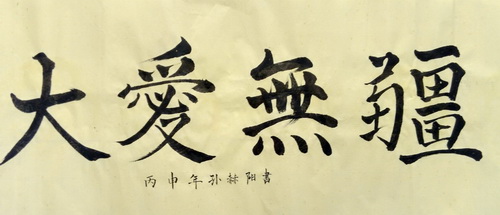 大愛無疆
丙申年孙赫阳書